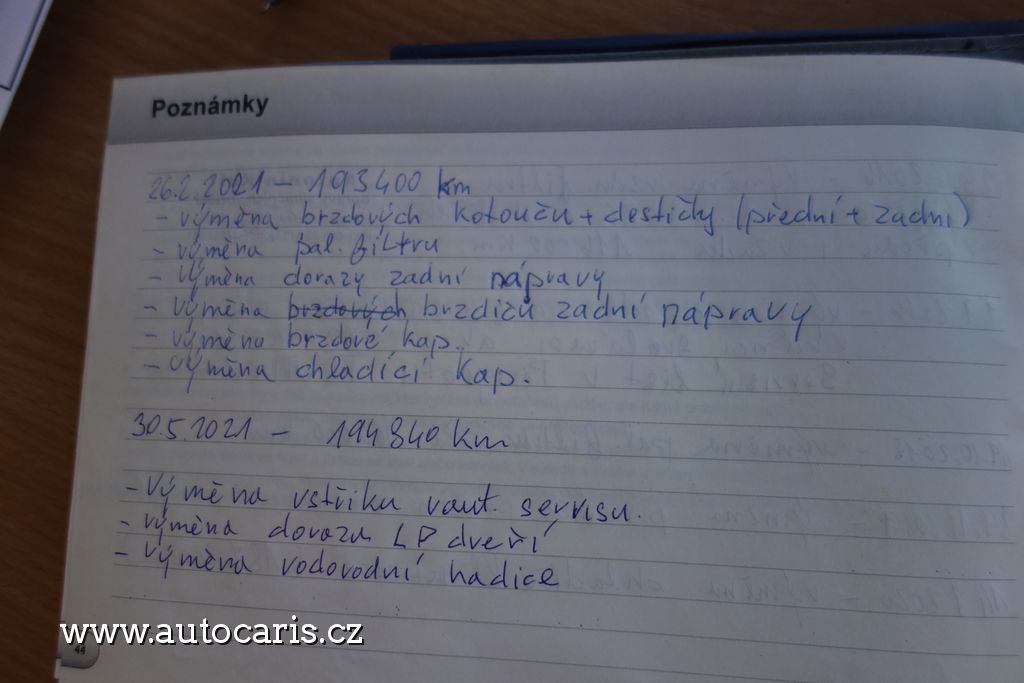 Poznámky
26.2.2021 - 193400 km
- výměna brzdových kotoučů + destičky (přední + zadní)
- výměna pal. filtru
- výměna dorazy zadní nápravy
- výměna brzdových brzdičů zadní nápravy
- výměna brzdové kap.
- výměna chladící kap.
30.5.2021 - 194840 km
- výměna vstřiku vaut. servisu.
- výměna dorazu LP dveří
- výměna vodovodní hadice
www.autocaris.cz
44